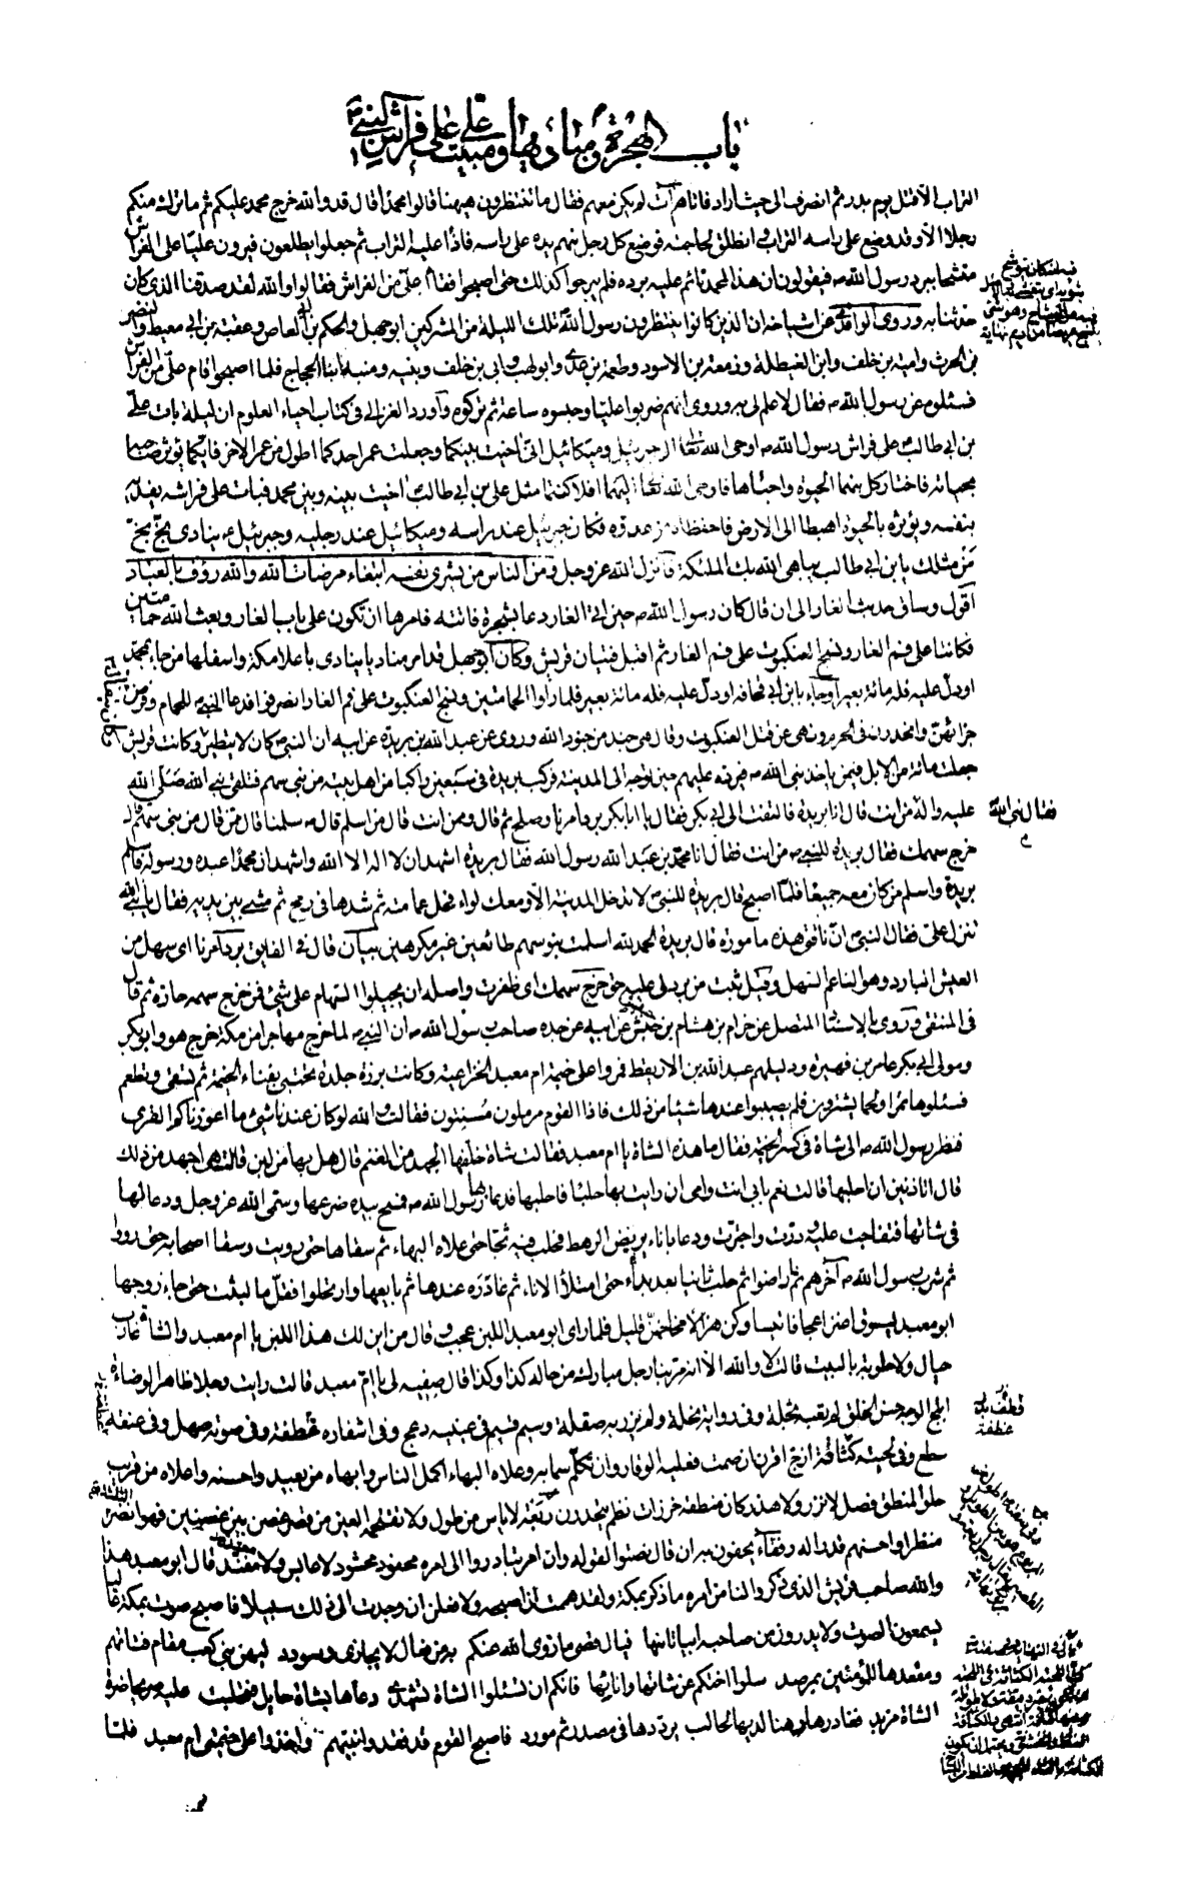 باب الهجرة و مباديها و مبيت علي على فراش النبي
التراب الا قتل يوم بدر ثم انصرف الى حيث اراد فاتاهم آت لم يكن معهم فقال ما تنتظرون هيهنا قالوا محمدا قال قد والله خرج محمد عليكم ثم ما ترك منكم
رجلا الا وقد وضع على راسه التراب وانطلق لحاجته فوضع كل رجل منهم يده على راسه فاذا عليه التراب ثم جعلوا يطلعون فيرون عليا على الفراش
متشحا ببرد رسول الله ص فيقولون ان هذا لمحمد نائم عليه برده فلم يبرحوا كذلك حتى اصبحوا فقام علي من الفراش فقالوا والله لقد صدقنا الذي كان
حدثنا به وروى الواقدي عن اشياخه ان الذين كانوا ينتظرون رسول الله تلك الليلة من المشركين ابو جهل والحكم بن ابي العاص وعقبة بن ابي معيط والنضر
بن الحرث وامية بن خلف وابن الغيطلة وزمعة بن الاسود وطعمة بن عدي وابو لهب وابي بن خلف ونبيه ومنبه ابنا الحجاج فلما اصبحوا قام علي من الفراش
فسئلوه عن رسول الله ص فقال لا علم لي به وروي انهم ضربوا عليا وحبسوه ساعة ثم تركوه واورد الغزالي في كتاب احياء العلوم ان ليلة بات علي
بن ابي طالب على فراش رسول الله ص اوحى الله تعالى الى جبرئيل وميكائيل اني اخيت بينكما وجعلت عمر احدكما اطول من عمر الاخر فايكما يؤثر صاحبه
بحياته فاختار كل منهما الحيوة واحباها فاوحى الله تعالى اليهما افلا كنتما مثل علي بن ابي طالب اخيت بينه وبين محمد فبات على فراشه يفديه
بنفسه ويؤثره بالحيوة اهبطا الى الارض فاحفظاه من عدوه فكان جبرئيل عند راسه وميكائيل عند رجليه وجبرئيل ع ينادي بخ بخ
من مثلك يا بن ابي طالب يباهي الله بك الملئكة فانزل الله عز وجل ومن الناس من يشري نفسه ابتغاء مرضات الله والله رؤف بالعباد
اقول وساق حديث الغار الى ان قال كان رسول الله ص حين اتى الغار دعا بشجرة فاتته فامرها ان تكون على باب الغار وبعث الله حمامتين
فكانتا على فم الغار ونسج العنكبوت على فم الغار ثم اقبل فتيان قريش وكان ابو جهل قد امر مناديا ينادي باعلا مكة واسفلها من جاء بمحمد
او دل عليه فله مائة بعير او جاء بابن ابي قحافة او دل عليه فله مائة بعير فلما راوا الحمامتين ونسج العنكبوت على فم الغار انصرفوا فدعا النبي ص للحمام وفرض
جزائهن وانحدرن في الحرم ونهى عن قتل العنكبوت وقال هي جند من جنود الله وروي عن عبد الله بن بريدة عن ابيه ان النبي ص كان لا يتطير وكانت قريش
جعلت مائة من الابل فيمن ياخذ نبي الله ص فيرده عليهم حين توجه الى المدينة فركب بريدة في سبعين راكبا من اهل بيته من بني سهم فتلقى نبي الله صلى الله
عليه واله من انت قال انا بريدة فالتفت الى ابي بكر فقال يا ابا بكر برد امرنا وصلح ثم قال وممن انت قال من اسلم قال ص سلمنا قال ممن قال من بني سهم قال
خرج سهمك فقال بريدة للنبي ص من انت فقال انا محمد بن عبد الله رسول الله فقال بريدة اشهد ان لا اله الا الله واشهد ان محمدا عبده ورسوله فاسلم
بريدة واسلم من كان معه جميعا فلما اصبح قال بريدة للنبي ص لا تدخل المدينة الا ومعك لواء فحل عمامته ثم شدها في رمح ثم مشى بين يديه فقال يا نبي الله
تنزل علي فقال النبي ص ان ناقتي هذه مامورة قال بريدة الحمد لله اسلمت بنو سهم طائعين غير مكرهين بيان قال في الفايق برد امرنا اي سهل من
العيش البارد وهو الناعم السهل وقيل ثبت من برد لي عليه حق خرج سهمك اي ظفرت واصله ان يجيلوا السهام على شيء فمن خرج سهمه حازه ثم قال
في المنتقى وروى بالاسناد المتصل عن حزام بن هشام بن حبيش عن ابيه عن جده صاحب رسول الله ص ان النبي ص لما خرج مهاجرا من مكة خرج هو وابو بكر
ومولى ابي بكر عامر بن فهيرة ودليلهم عبد الله بن الاريقط فمروا على خيمة ام معبد الخزاعية وكانت برزة جلدة تحتبي بفناء الخيمة ثم تسقي وتطعم
فسئلوها تمرا ولحما يشترون فلم يصيبوا عندها شيئا من ذلك فاذا القوم مرملون مسنتون فقالت والله لو كان عندنا شيء ما اعوزناكم القرى
فنظر رسول الله ص الى شاة في كسر الخيمة فقال ما هذه الشاة يا ام معبد فقالت شاة خلفها الجهد من الغنم قال هل بها من لبن قالت هي اجهد من ذلك
قال اتاذنين ان احلبها قالت نعم بابي انت وامي ان رايت بها حلبا فاحلبها فدعا بها رسول الله ص فمسح بيده ضرعها وسمى الله عز وجل ودعا لها
في شاتها فتفاجت عليه ودرت واجترت ودعا باناء يربض الرهط فحلب فيه ثجا حتى علاه البهاء ثم سقاها حتى رويت وسقا اصحابه حتى رووا
ثم شرب رسول الله ص آخرهم ثم اراضوا ثم حلب ثانيا بعد بدء حتى امتلأ الاناء ثم غادره عندها ثم بايعها وارتحلوا فقل ما لبثت حتى جاء زوجها
ابو معبد ليسوق اعنزا عجافا تساوكن هزلا مخاخهن قليل فلما راى ابو معبد اللبن عجب وقال من اين لك هذا اللبن يا ام معبد والشاء عازب
حيال ولا حلوبة بالبيت قالت لا والله الا انه مر بنا رجل مبارك من حاله كذا وكذا قال صفيه لي يا ام معبد قالت رايت رجلا ظاهر الوضاءة
ابلج الوجه حسن الخلق لم تعبه نحلة وفي رواية نحلة ولم يزر به صقلة وسيم قسيم في عينيه دعج وفي اشفاره غطف وفي صوته صهل وفي عنقه
سطع وفي لحيته كثاثة ازج اقرن ان صمت فعليه الوقار وان تكلم سما به وعلاه البهاء اكمل الناس وابهاه من بعيد واحسنه واعلاه من قريب
حلو المنطق فصل لا نزر ولا هذر كان منطقه خرزات نظم يتحدرن ربعة لا باس من طول ولا تقتحمه العين من قصر غصن بين غصنين فهو انضر
منظرا واحسنهم قدرا له رفقاء يحفون به ان قال نصتوا لقوله وان امر تبادروا الى امره محفود محشود لا عابس ولا مفند قال ابو معبد هذا
والله صاحب قريش الذي ذكر لنا من امره ما ذكر بمكة ولقد هممت ان اصحبه ولافعلن ان وجدت الى ذلك سبيلا فاصبح صوت بمكة عاليا
يسمعون الصوت ولا يدرون من صاحبه ابياتا منها فيال قصي ما زوى الله عنكم به من فعال لا يجازى وسودد ليهن بني كعب مقام فتاتهم
ومقعدها للمؤمنين بمرصد سلوا اختكم عن شاتها وانائها فانكم ان تسئلوا الشاة تشهد دعاها بشاة حايل فتحلبت عليه صريحا ضرة
الشاة مزبد فغادرها رهنا لديها لحالب يرددها في مصدر ثم مورد فاصبح القوم قد فقدوا نبيهم واخذوا على خيمتي ام معبد فلما
فقال نبي الله